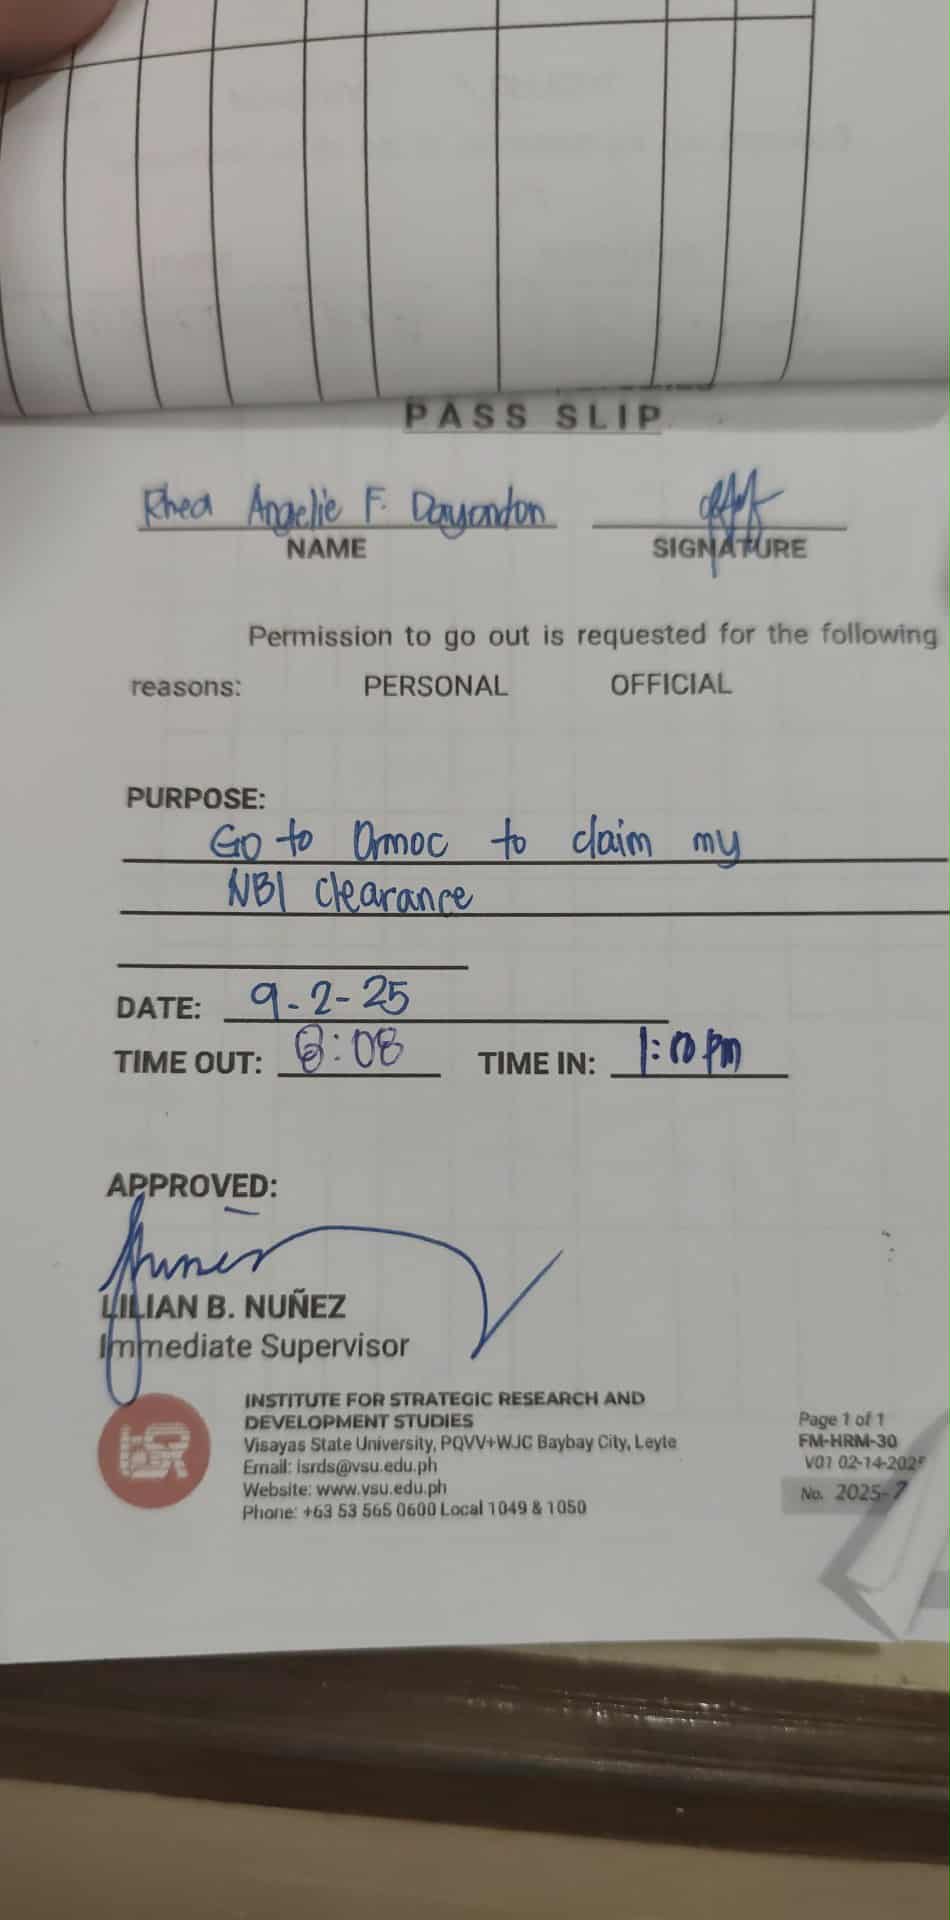 PASS SLIP
Rhea Angelie F. Dayondon
NAME SIGNATURE
Permission to go out is requested for the following
reasons: PERSONAL OFFICIAL
PURPOSE:
Go to Ormoc to claim my
NBI clearance
DATE: 9-2-25
TIME OUT: 8:08 TIME IN: 1:10 pm
APPROVED:
LILIAN B. NUÑEZ
Immediate Supervisor
INSTITUTE FOR STRATEGIC RESEARCH AND
DEVELOPMENT STUDIES
Visayas State University, PQVV+WJC Baybay City, Leyte
Email: isrds@vsu.edu.ph
Website: www.vsu.edu.ph
Phone: +63 53 565 0600 Local 1049 & 1050
Page 1 of 1
FM-HRM-30
V01 02-14-2025
No. 2025-